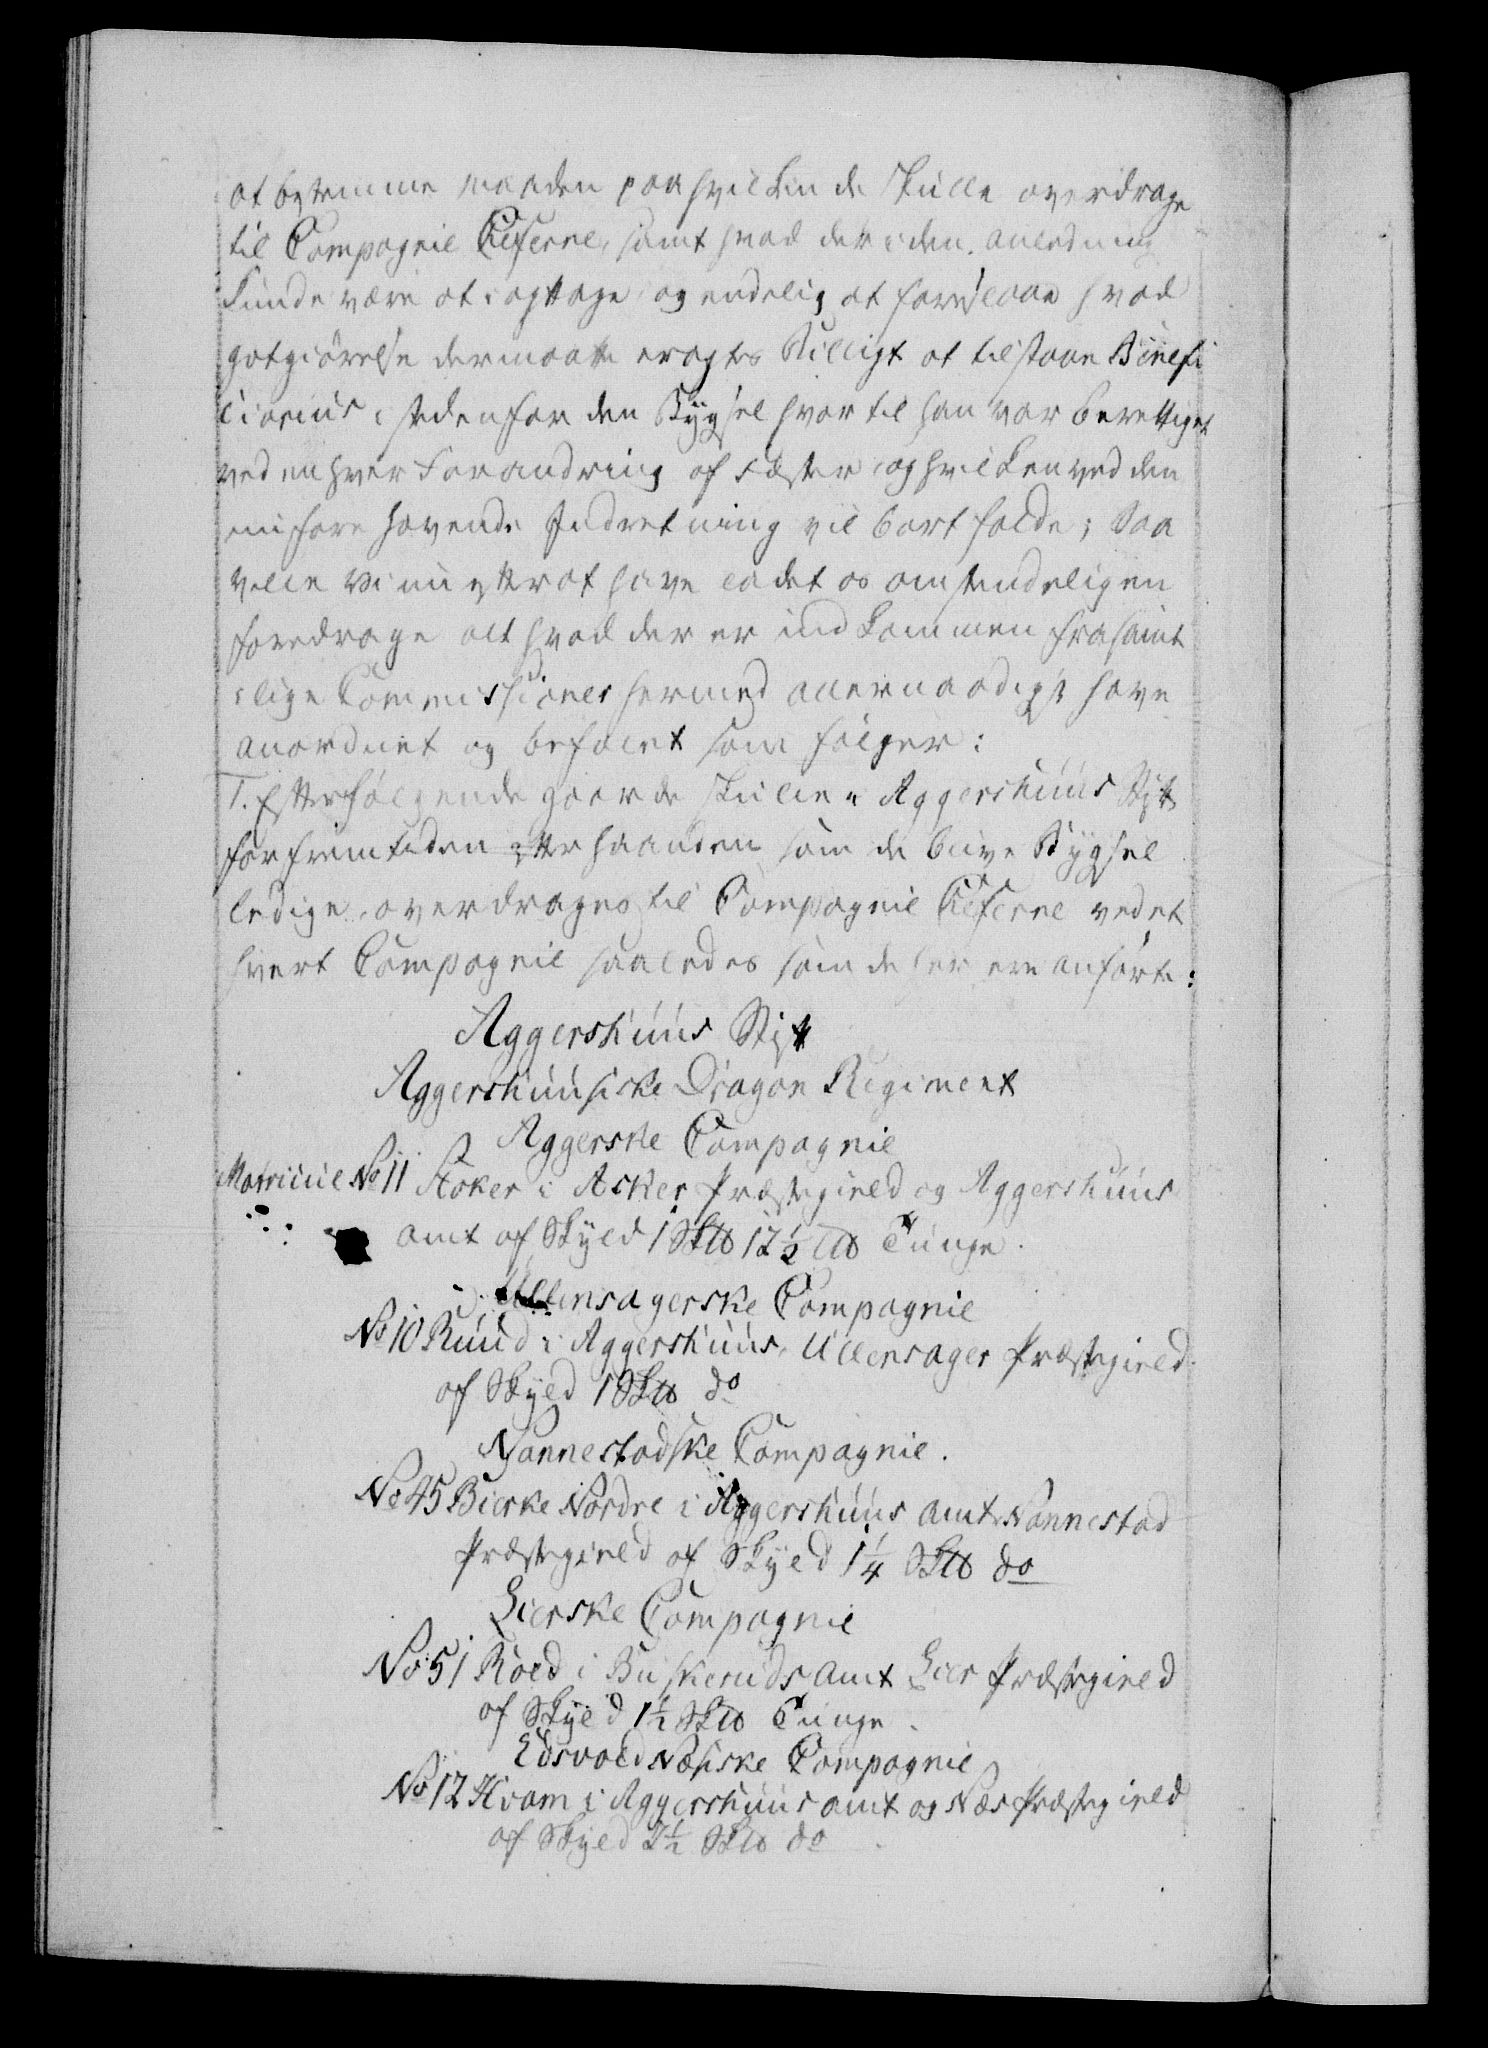 at bestemme maaden paa hvilken de skulle overdrage
til Compagnie Cheferne, samt hvad der i den anledning
kunde være at iagttage og endelig at foreslaae hvad
godtgiørelse dermaatte eragtes billigt at tilstaae Benefi
ciarius i stedenfor den Bygsel hvortil han var berettiget
ved enhver Forandring af Fæster og hvilken ved den
nu forehavende Indretning vil bortfalde; Saa
velle Vi nu efter at have ladet os omstændeligen
foredrage alt hvad der er indkommen fra samt
lige Commissioner hermed allernaadigst have
anordnet og befalet som følger:
1. Efterfølgende gaarde skulle i Aggershuus Stift
for fremtiden efter haanden som de blive Bygsel
ledige overdrages til Compagnie Cheferne ved et
hvert Compagnie saaledes som de her ere anførte:
Aggershuus Stift
Aggershuusiske Dragon Regiment
Aggerske Compagnie
Matricul No 11 Aaker i Asker Præstegield og Aggershuus
amt af Skyld 1 Sk℔ 12½ ℔ Tunge.
Ullensagerske Compagnie
No 10 Ruud i Aggershuus, Ullensager Præstegield
af Skyld 1 Sk℔ do
Nannestadske Compagnie.
No 45 Bierke Nordre i Aggershuus amt Nannestad
Præstegield af Skyld 1¼ Sk℔ do
Lierske Compagnie
No 51 Roed i Buskeruds amt Lier Præstegield
af Skyld 1½ Sk℔ Tunge.
Edsvold Næsiske Compagnie
No 12 Hvam i Aggershuus amt og Næs Præstegield
af Skyld 2½ Sk℔ do.